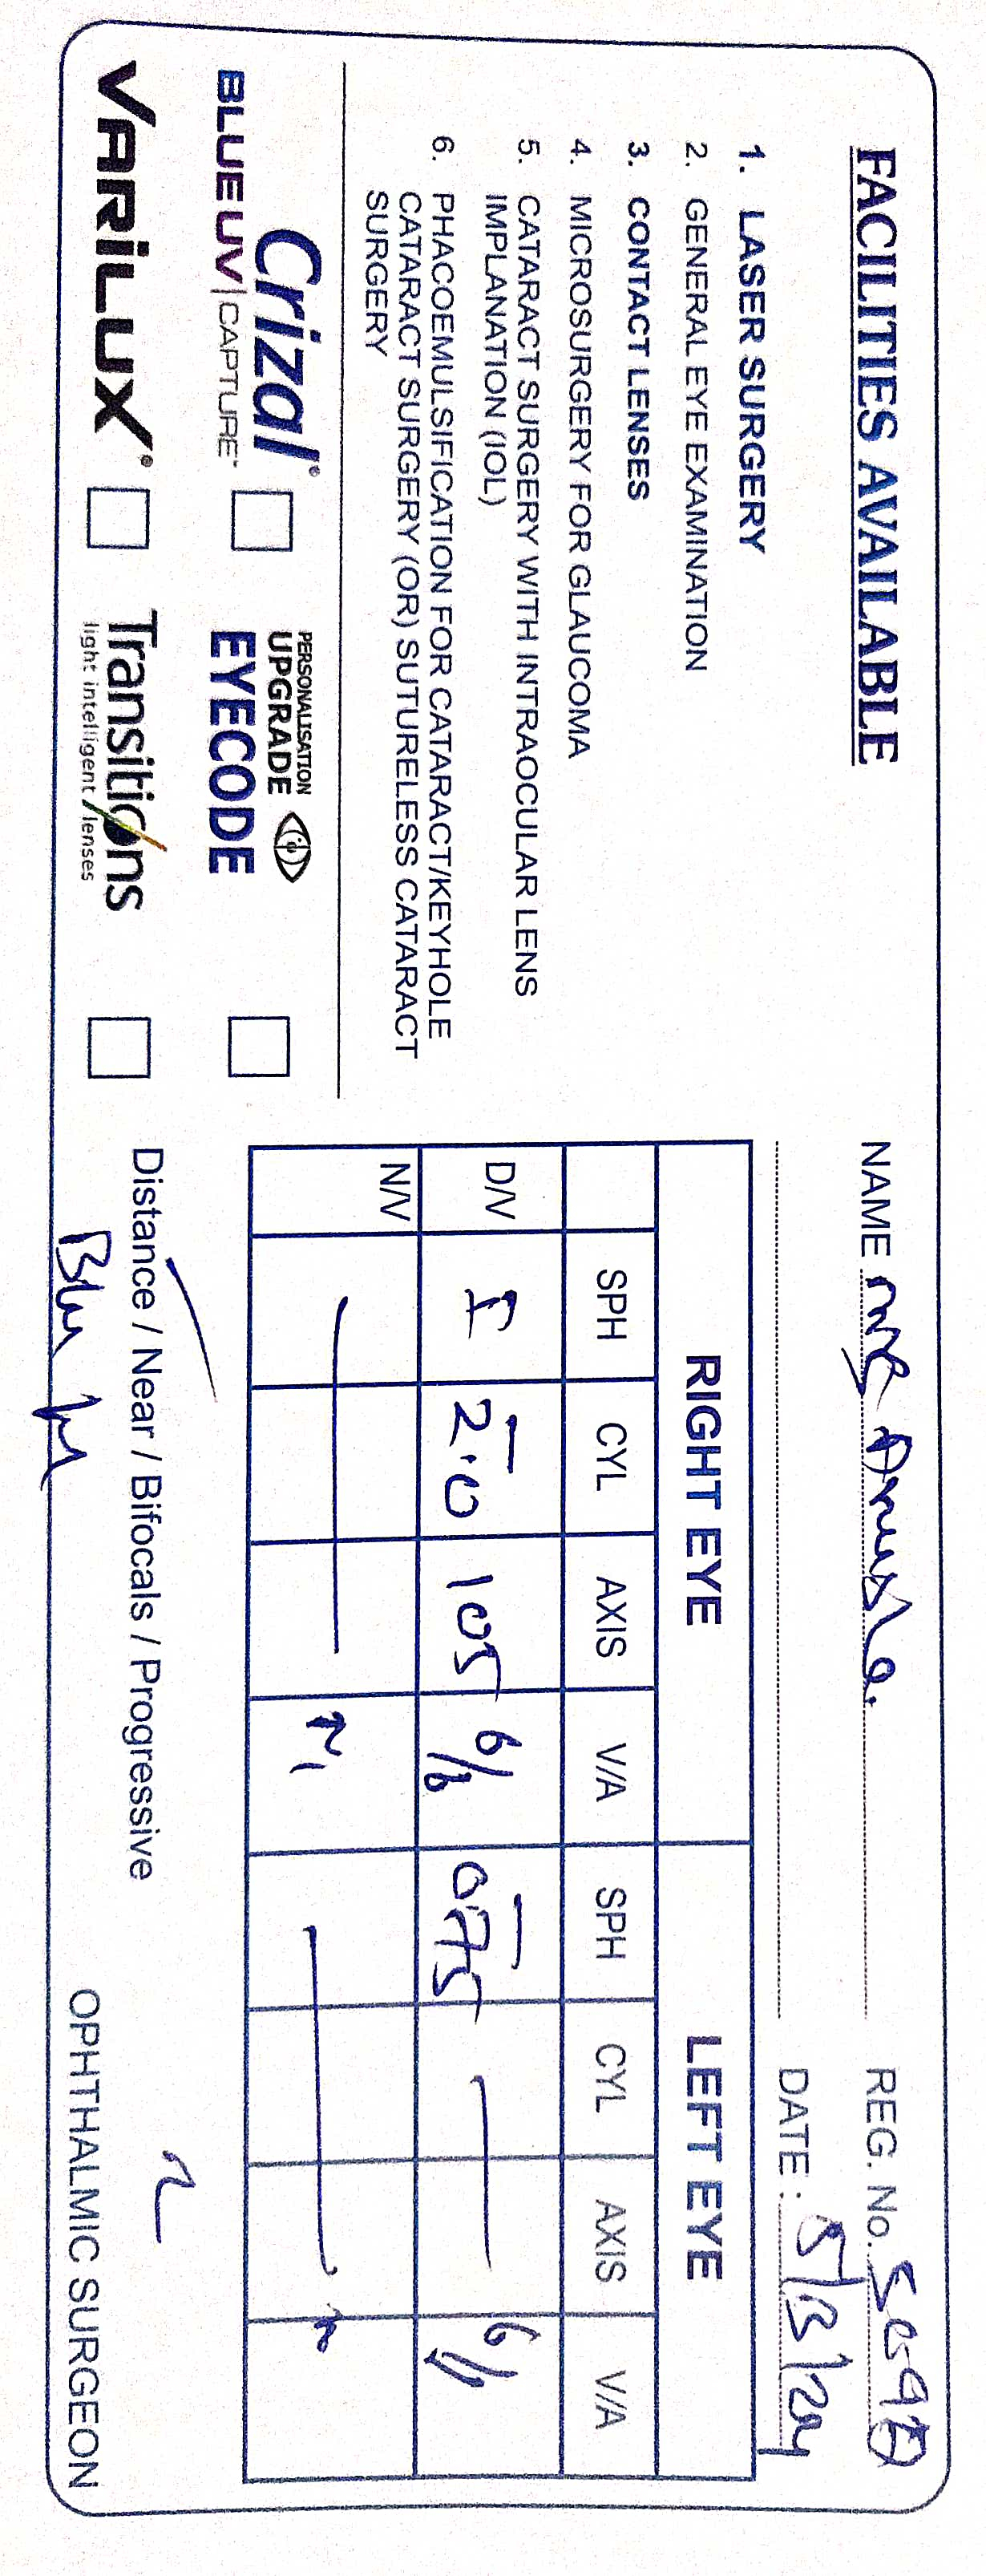 FACILITIES AVAILABLE
1. LASER SURGERY
2. GENERAL EYE EXAMINATION
3. CONTACT LENSES
4. MICROSURGERY FOR GLAUCOMA
5. CATARACT SURGERY WITH INTRAOCULAR LENS
IMPLANATION (IOL)
6. PHACOEMULSIFICATION FOR CATARACT/KEYHOLE
CATARACT SURGERY (OR) SUTURELESS CATARACT
SURGERY
Crizal®
BLUE UV | CAPTURE™
PERSONALISATION
UPGRADE
EYECODE
VARILUX®
Transitions
light intelligent lenses
NAME
REG. No.
DATE : 5/3/24
RIGHT EYE LEFT EYE
SPH CYL AXIS V/A SPH CYL AXIS V/A
D/V -2.0 105 6/6 -0.75 — 6/
N/V
Distance / Near / Bifocals / Progressive
Blu
OPHTHALMIC SURGEON